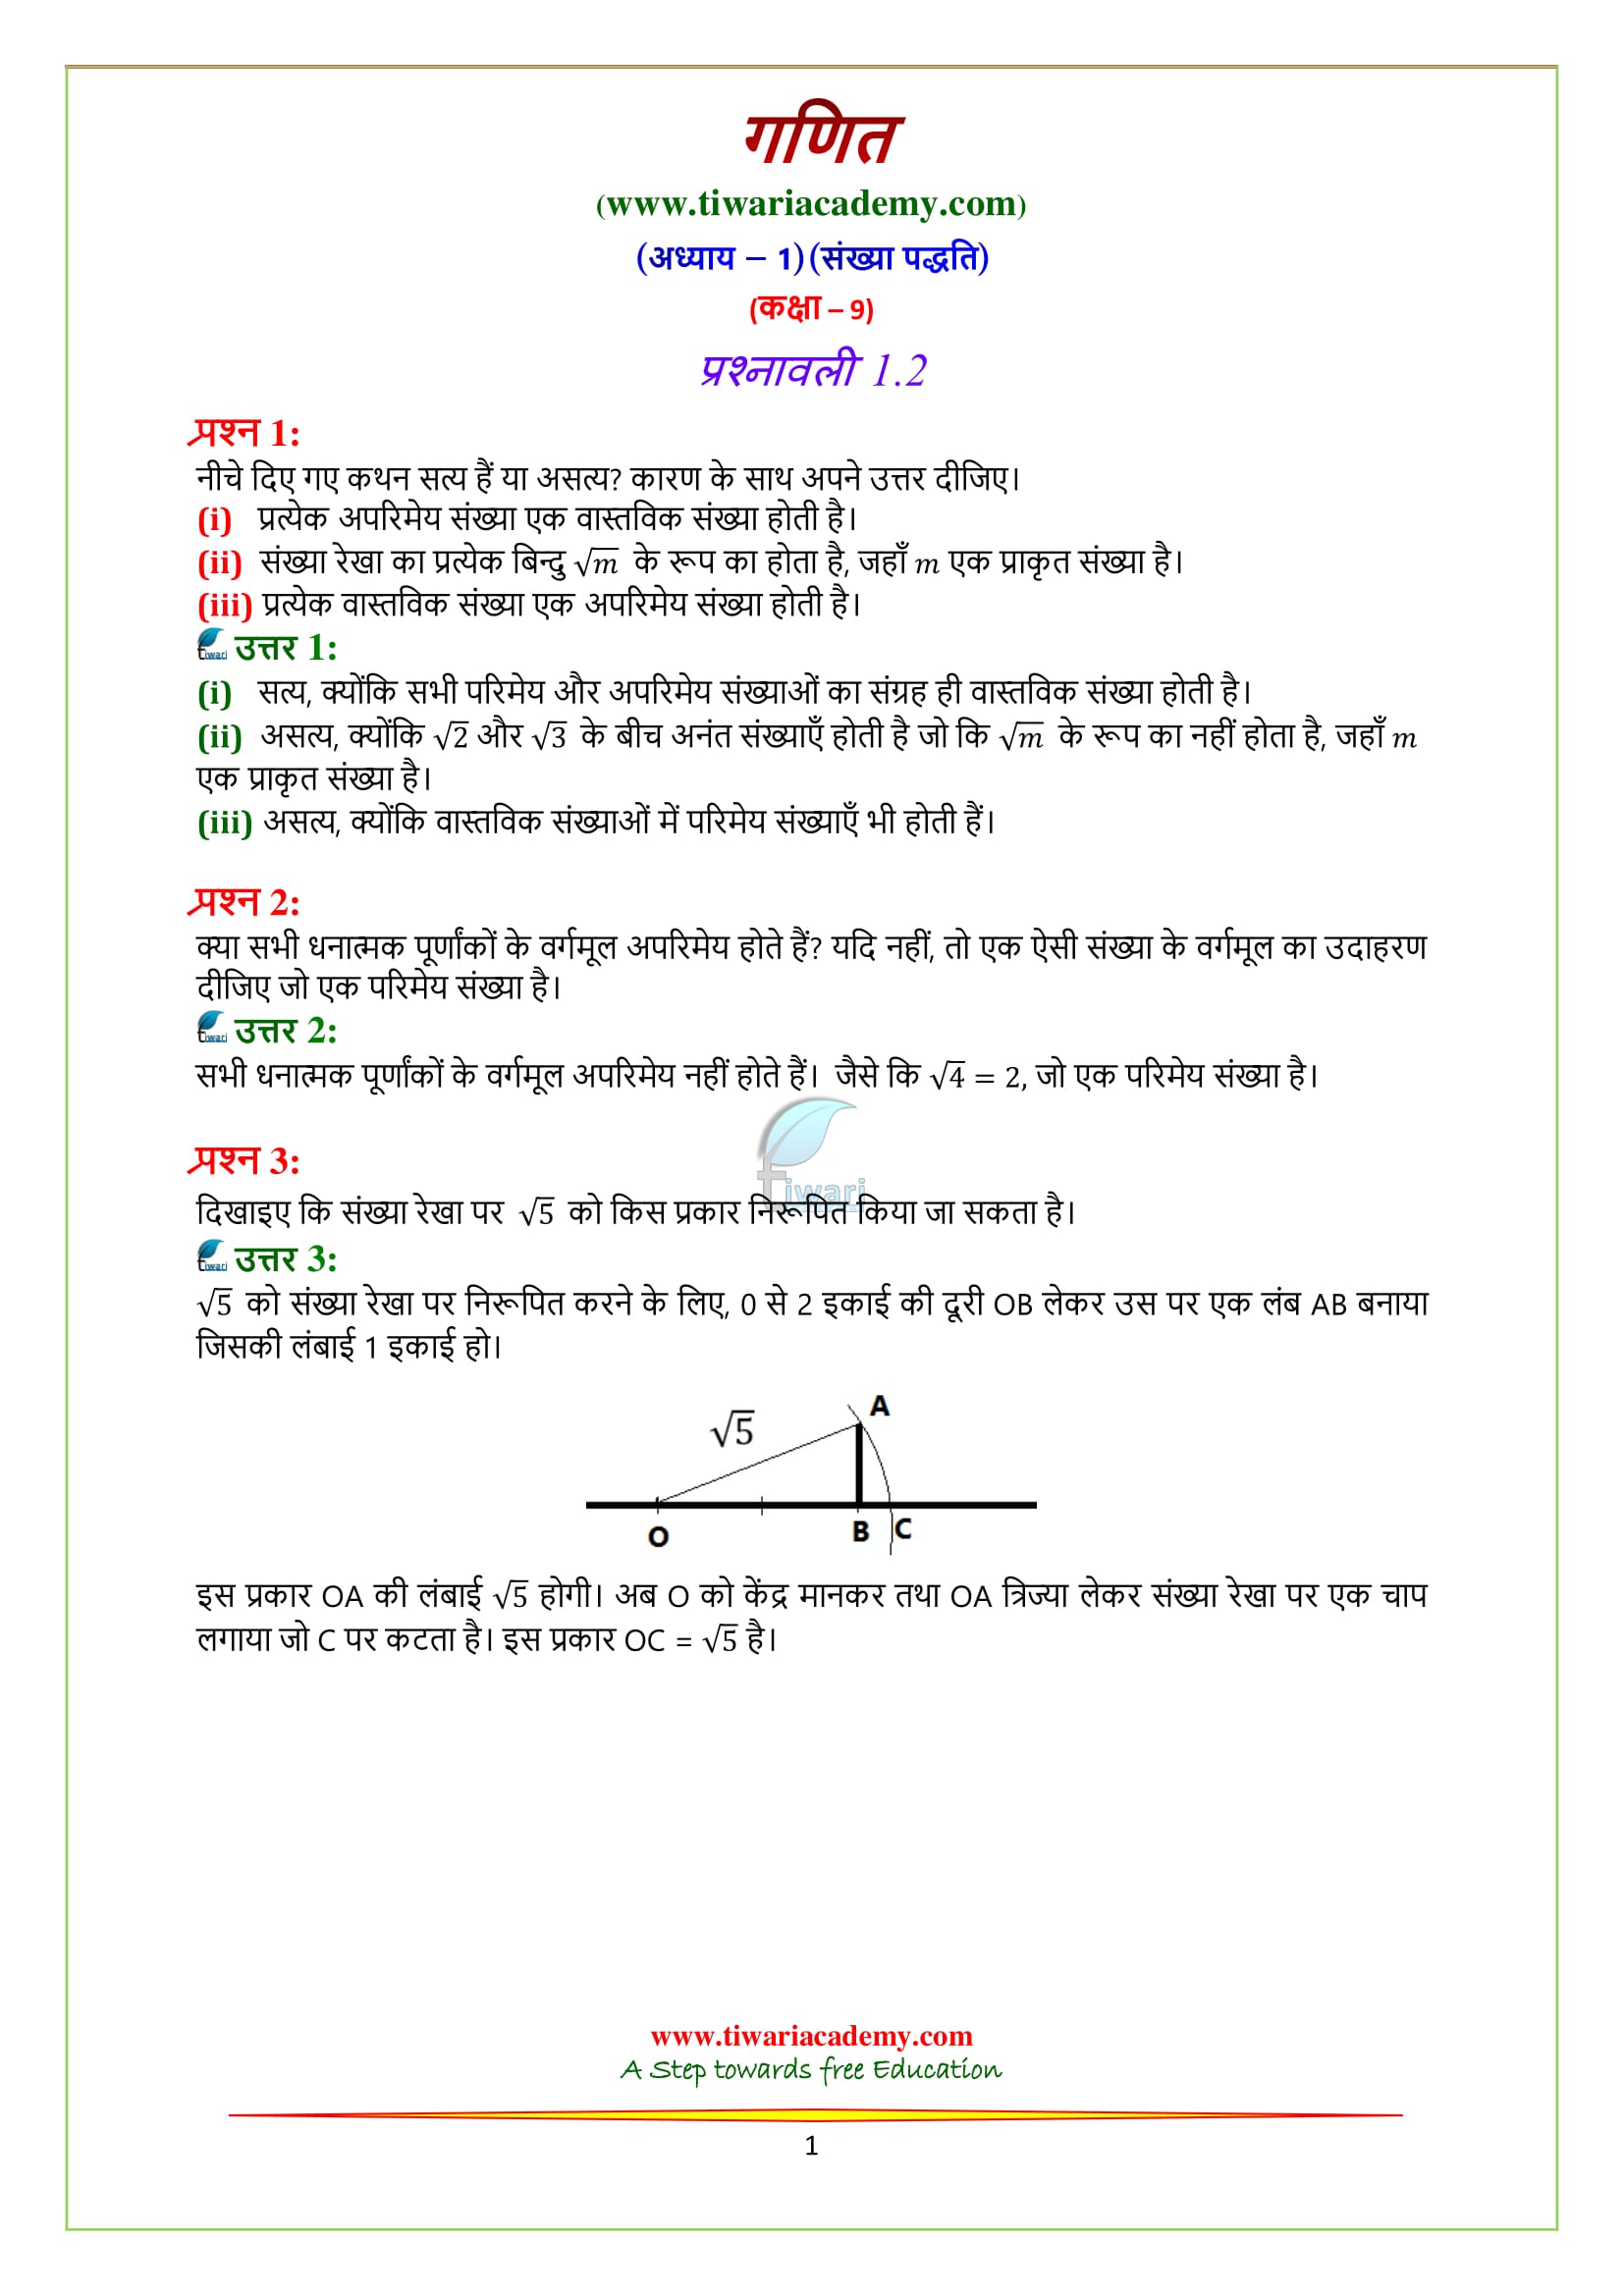 गणित
(www.tiwariacademy.com)
(अध्याय – 1)(संख्या पद्धति)
(कक्षा – 9)
प्रश्नावली 1.2
प्रश्न 1:
नीचे दिए गए कथन सत्य हैं या असत्य? कारण के साथ अपने उत्तर दीजिए।
(i) प्रत्येक अपरिमेय संख्या एक वास्तविक संख्या होती है।
(ii) संख्या रेखा का प्रत्येक बिन्दु √m के रूप का होता है, जहाँ m एक प्राकृत संख्या है।
(iii) प्रत्येक वास्तविक संख्या एक अपरिमेय संख्या होती है।
tiwari उत्तर 1:
(i) सत्य, क्योंकि सभी परिमेय और अपरिमेय संख्याओं का संग्रह ही वास्तविक संख्या होती है।
(ii) असत्य, क्योंकि √2 और √3 के बीच अनंत संख्याएँ होती है जो कि √m के रूप का नहीं होता है, जहाँ m
एक प्राकृत संख्या है।
(iii) असत्य, क्योंकि वास्तविक संख्याओं में परिमेय संख्याएँ भी होती हैं।
प्रश्न 2:
क्या सभी धनात्मक पूर्णांकों के वर्गमूल अपरिमेय होते हैं? यदि नहीं, तो एक ऐसी संख्या के वर्गमूल का उदाहरण
दीजिए जो एक परिमेय संख्या है।
tiwari उत्तर 2:
सभी धनात्मक पूर्णांकों के वर्गमूल अपरिमेय नहीं होते हैं। जैसे कि √4 = 2, जो एक परिमेय संख्या है।
tiwari
प्रश्न 3:
दिखाइए कि संख्या रेखा पर √5 को किस प्रकार निरूपित किया जा सकता है।
tiwari उत्तर 3:
√5 को संख्या रेखा पर निरूपित करने के लिए, 0 से 2 इकाई की दूरी OB लेकर उस पर एक लंब AB बनाया
जिसकी लंबाई 1 इकाई हो।
A
√5
O B C
इस प्रकार OA की लंबाई √5 होगी। अब O को केंद्र मानकर तथा OA त्रिज्या लेकर संख्या रेखा पर एक चाप
लगाया जो C पर कटता है। इस प्रकार OC = √5 है।
www.tiwariacademy.com
A Step towards free Education
1